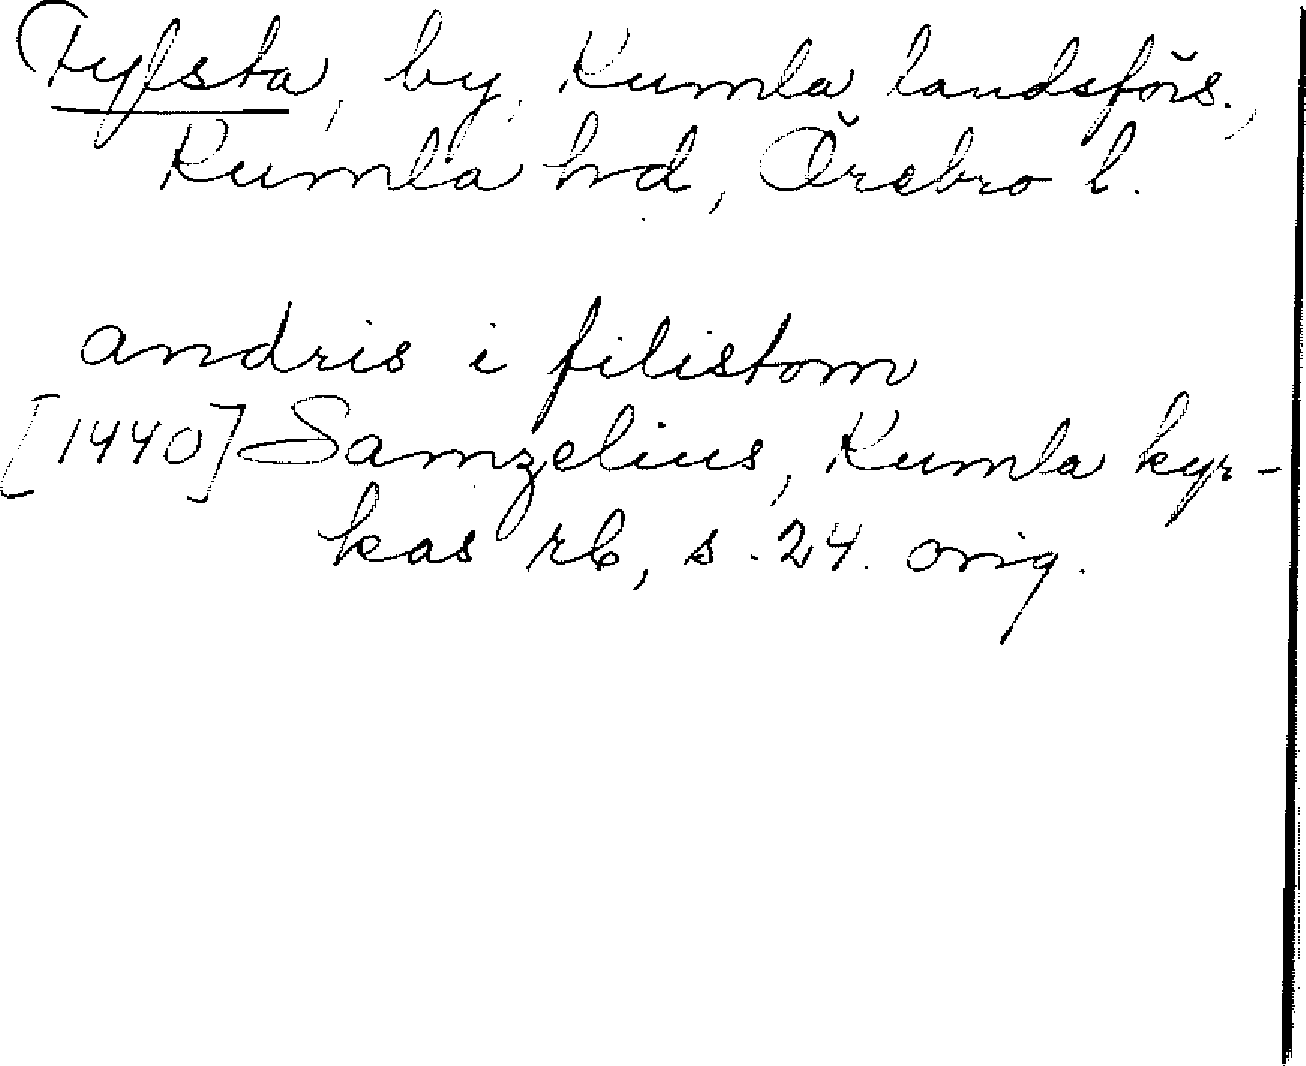 Fylsta, by, Kumla landsförs.,
Kumla hd, Örebro l.
andris i filistom
[1440] Samzelius, Kumla kyr-
kas rb, s. 24. orig.